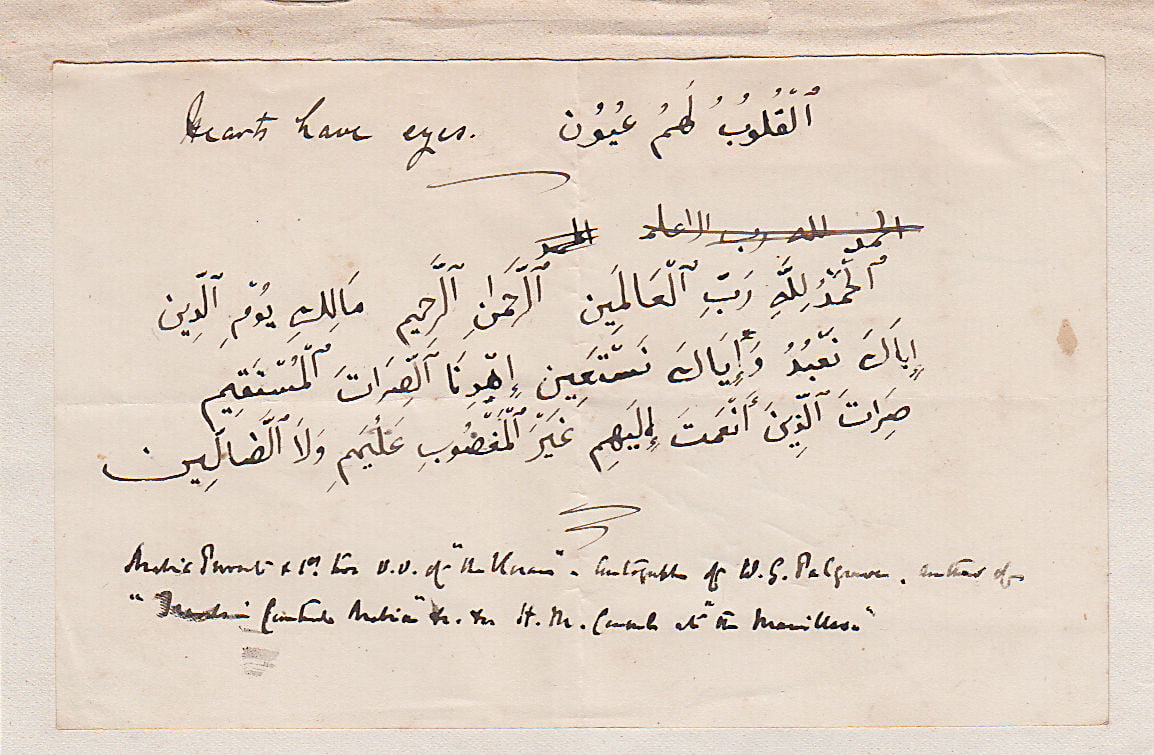 Hearts have eyes. اَلْقُلُوبُ لَهُمُ عُيُوُن
الحمد لله رب الاعلد الحمد
اَلْحَمْدُ لِلَّهِ رَبِّ اَلْعَالَمِين اَلرَّحْمَانِ اَلرَّحِيم مَالِكِ يَوْمِ اَلدِّين
إِيَاكَ نَعْبُدُ وَأِيَاكَ نَسْتَعِين إِهْدِنَا اَلصِّرَاتَ اَلْمُسْتَقِيم
صِرَاتَ اَلَّذِينَ أَنْعَمتَ إِلَيهِم غَيْرَ اَلْمَغْضُوبِ عَلَيْهِمِ وَلَا اَلضَّالِّين
Arabic Proverb & 1st two v.v. of "the Koran" - autograph of W. G. Palgrave, author of
" Central Arabia" &c. &c H. M. Consul at "the Manillas"